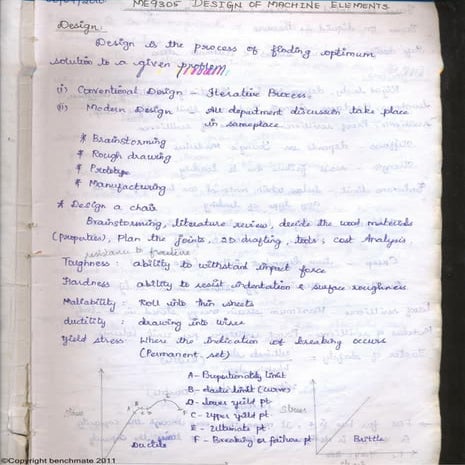 ME9305 DESIGN OF MACHINE ELEMENTS
Design:
Design is the process of finding optimum
solution to a given problem
(i) Conventional Design - Iterative Process
(ii) Modern Design - All department discussion take place
in same place.
* Brainstorming
* Rough drawing
* Prototype
* Manufacturing
* Design a chair
Brainstorming, literature review, decide the used materials
(properties), Plan the joints, 2D drafting, tests, cost Analysis,
resistance to fracture
Toughness : ability to withstand impact force
Hardness ability to resist indentation & surface roughness
Malliability : Roll into thin sheets
ductility : drawing into wires
Yield stress : Where the indication of breaking occurs
(Permanent set)
A - Proportionality limit
B - elastic limit (curve)
D - lower yield pt
C - Upper yield pt
E - Ultimate pt
F - Breaking or failure pt
Stress
Ductile
Brittle
©Copyright benchmate 2011